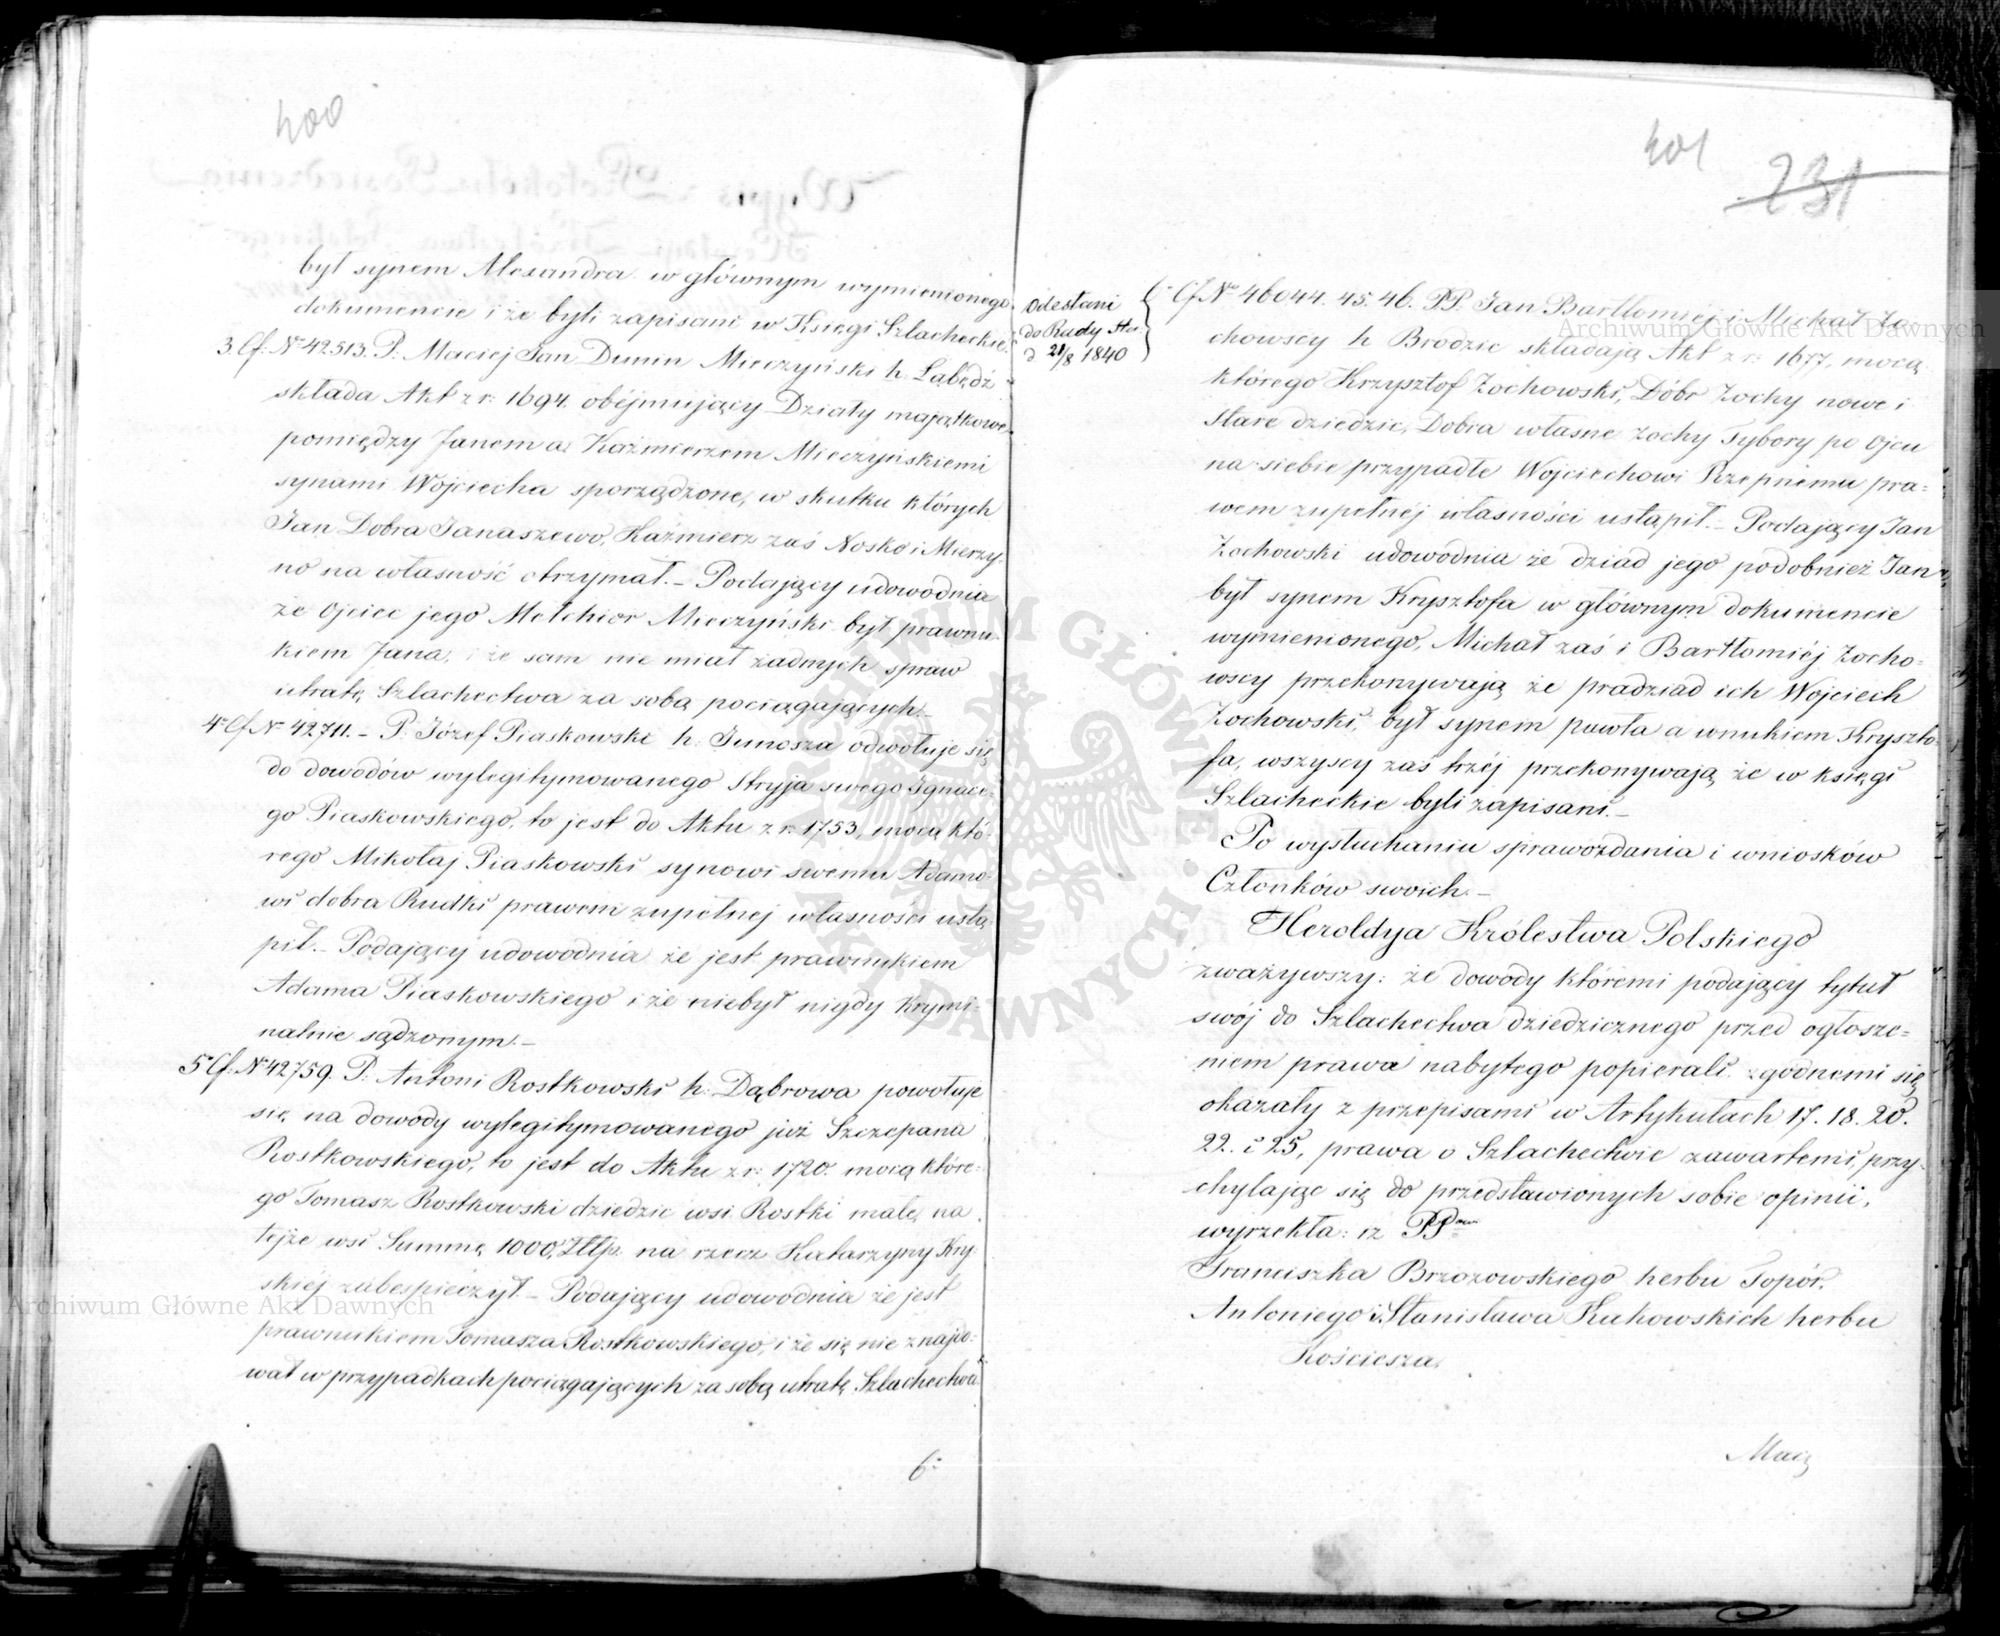 400
był synem Alexandra w głównym wymienionego
dokumencie i że byli zapisani w Księgi Szlacheckie.
3. Cf: N° 42513. P. Maciej Jan Dunin Mieczyński h. Łabędź
składa Akt z r: 1694. obéjmujący Działy majątkowe
pomiędzy Janem a Kaźmierzem Mieczyńskiemi
synami Wojciecha sporządzone, w skutku których
Jan Dobra Janaszewo, Kaźmierz zaś Nosko i Mierzy-
no na własność otrzymał. – Podający udowodnia
że Ojciec jego Melchior Mieczyński był prawnu-
kiem Jana, i że sam nie miał żadnych spraw
utratę Szlachectwa za sobą pociągających. –
4° Cf N° 42711. – P. Józef Piaskowski h. Junosza odwołuje się
do dowodów wylegitymowanego Stryja swego Ignace-
go Piaskowskiego, to jest do Aktu z r: 1753, mocą któ-
rego Mikołaj Piaskowski synowi swemu Adamo-
wi dobra Rudki prawem zupełnej własności ustą-
pił. – Podający udowodnia że jest prawnukiem
Adama Piaskowskiego i że niebył nigdy krymi-
nalnie sądzonym. –
5° Cf: N° 42759. P. Antoni Rostkowski h: Dąbrowa powołuje
się na dowody wylegitymowanego już Szczepana
Rostkowskiego, to jest do Aktu z r: 1720. mocą które-
go Tomasz Rostkowski dziedzic wsi Rostki małe, na
tejże wsi Summę 1000 Złtp. na rzecz Katarzyny Kry-
skiéj zabespieczył. – Podający udowodnia że jest
prawnukiem Tomasza Rostkowskiego, i że się nie znajdo-
wał w przypadkach pociągających za sobą utratę Szlachectwa
6°
401
231
Odesłani
do Rady Sta.
d 21/8 1840
6° Cf N° 46044. 45. 46. PP. Jan Bartłomiéj i Michał Żo-
chowscy h Brodzic składają Akt z r: 1677, mocą
którego Krzysztof Żochowski, Dóbr Żochy nowe i
Stare dziedzic, Dobra własne Żochy Tybory po Ojcu
na siebie przypadłe Wojciechowi Rzepniemu pra-
wem zupełnéj własności ustąpił. – Podający Jan
Żochowski udowodnia że dziad jego podobnież Jan
był synem Krysztofa w głównym dokumencie
wymienionego, Michał zaś i Bartłomiéj Żocho-
wscy przekonywają że pradziad ich Wojciech
Żochowski, był synem pawła a wnukiem Kryszto-
fa, wszyscy zaś trzéj przekonywają że w księgi
Szlacheckie byli zapisani. –
Po wysłuchaniu sprawozdania i wniosków
Członków swoich. –
Heroldya Królestwa Polskiego
zważywszy: że dowody któremi podający tytuł
swój do Szlachectwa dziedzicznego przed ogłosze-
niem prawa nabytego popierali zgodnemi się
okazały z przepisami w Artykułach 17. 18. 20.
22. i 25, prawa o Szlachectwie zawartemi, przy-
chylając się do przedstawionych sobie opinii,
wyrzekła: iż PP
Franciszka Brzozowskiego herbu Topór.
Antoniego i Stanisława Kukowskich herbu
Kościesza.
Macie
Archiwum Główne Akt Dawnych
Archiwum Główne Akt Dawnych
ARCHIWUM GŁÓWNE AKT DAWNYCH